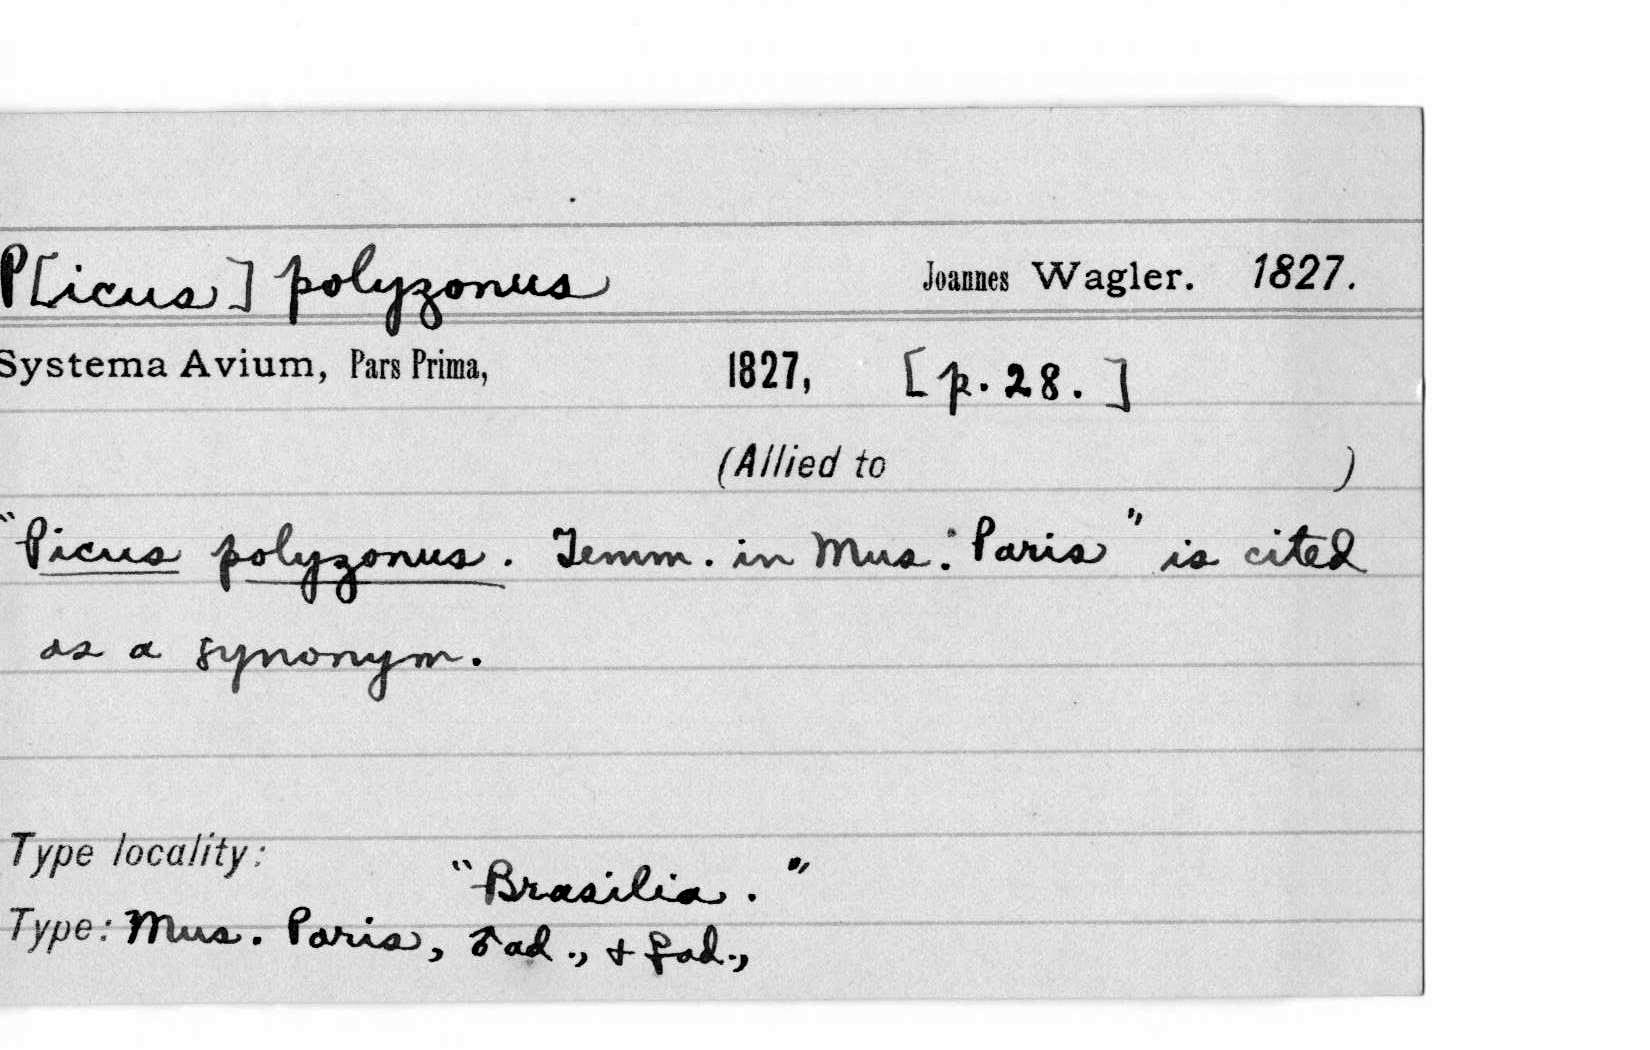 P[icus] polyzonus Joannes Wagler. 1827.
Systema Avium, Pars Prima, 1827, [p. 28.]
(Allied to )
"Picus polyzonus. Temm. in Mus: Paris" is cited
as a synonym.
Type locality:
"Brasilia."
Type: Mus. Paris, ♂ ad., + ♀ ad.,